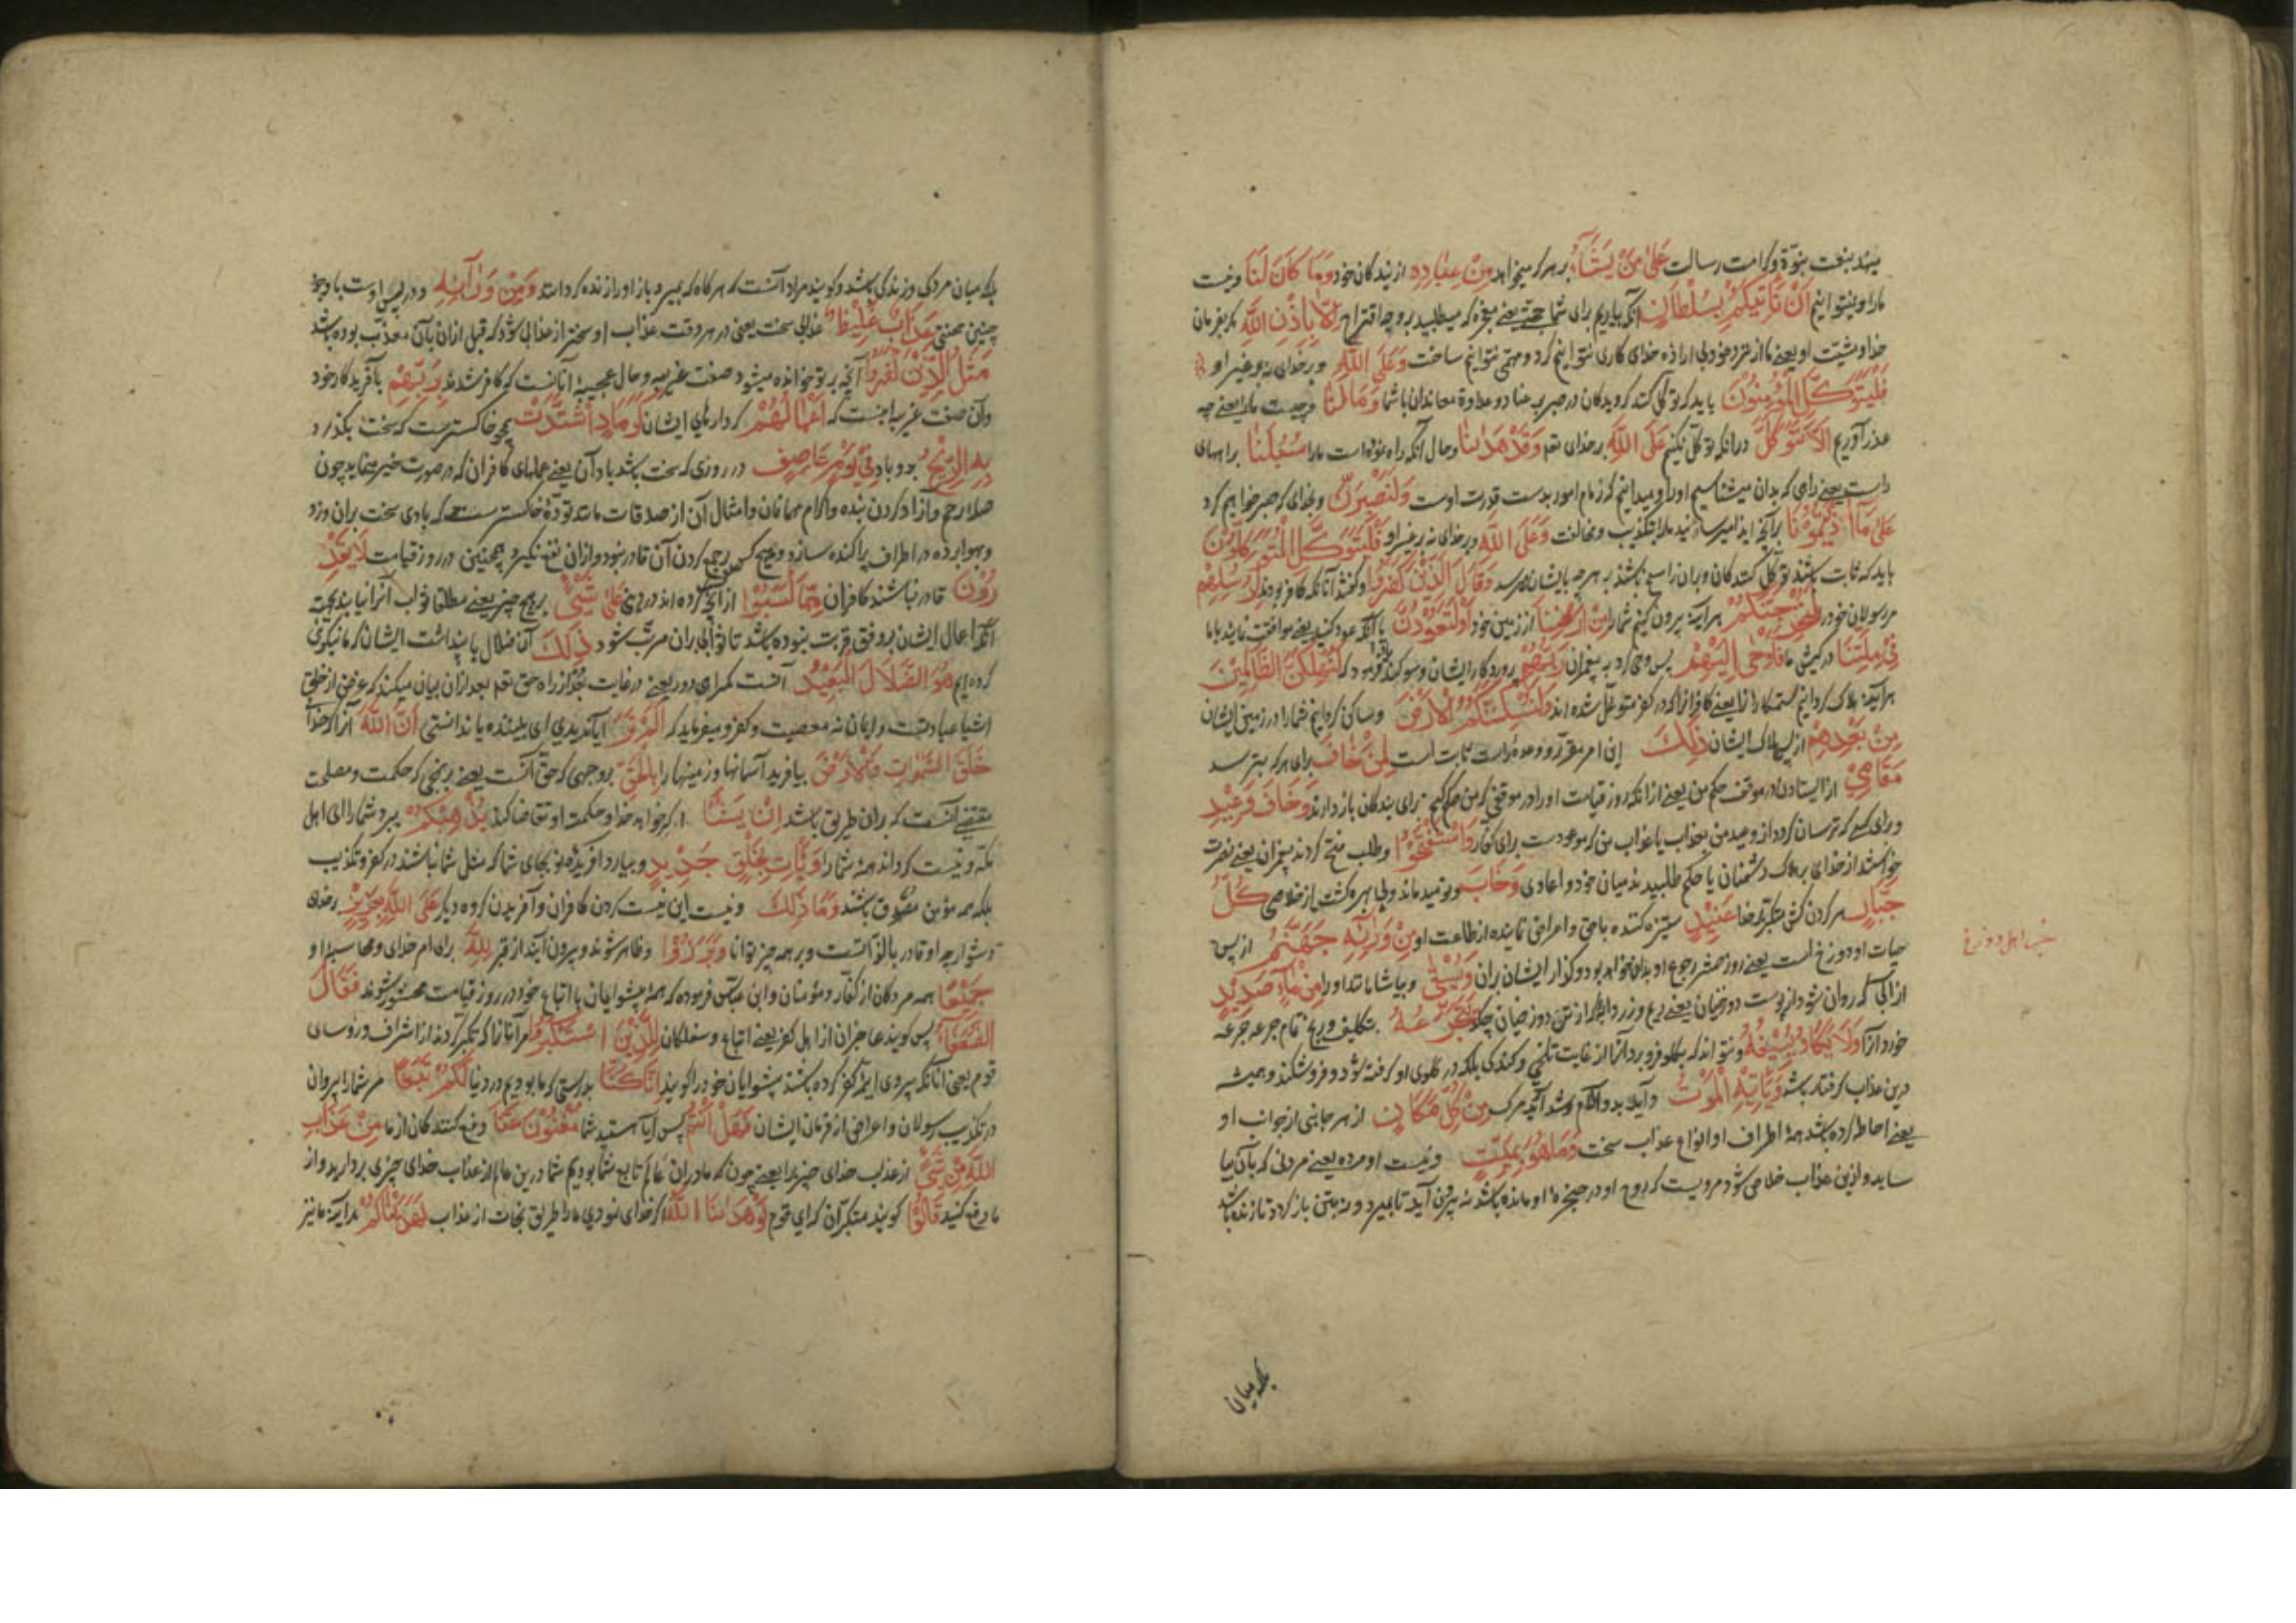 مینهد بنعمت نبوّة وکرامت رسالت عَلىٰ مَنْ يَشَآءُ بر هرکه میخواهد مِنْ عِبَادِهِ از بندکان خود وَمَا كَانَ لَنَا ونیست
مارا ونیتوانیم اَنْ نَأْتِيَكُمْ بِسُلْطَانٍ آنکه بیاریم برای شما حجتی یعنی معجزه که میطلبید بر وجه اقتراح اِلَّا بِاِذْنِ اللّٰهِ مکر بفرمان
خدا ومشیّت او یعنی ما از نزد خود بی اراده خدای کاری نتوانیم کرد ومهمّی نتوانیم ساخت وَعَلَى اللّٰهِ وبر خدای نه بر غیر او
فَلْيَتَوَكَّلِ الْمُؤْمِنُونَ باید که توکّل کنند کرویدکان در صبر بر عناد وعداوة معاندان با شما وَمَا لَنَا وچیست مارا یعنی چه
عذر آوریم اَلَّا نَتَوَكَّلَ درانکه توکّل نکنیم عَلَى اللّٰهِ بر خدای تعم وَقَدْ هَدٰىنَا وحال آنکه راه نموده است مارا سُبُلَنَا براههای
راست یعنی راهی که بدان میشناسیم اورا ومیدانیم که زمام امور بدست قدرت اوست وَلَنَصْبِرَنَّ وبخدای که صبر خواهیم کرد
عَلىٰ مَآ اٰذَيْتُمُونَا برآنچه ایذا میرسانید مارا بتکذیب ومخالفت وَعَلَى اللّٰهِ وبر خدای نه بر غیر او فَلْيَتَوَكَّلِ الْمُتَوَكِّلُونَ
باید که ثابت باشند توکّل کنندکان وبران راسخ باشند بهرچه بایشان رسد وَقَالَ الَّذِينَ كَفَرُوا وکفتند آنانکه کافر بودند لِرُسُلِهِمْ
مر رسولان خود را لَنُخْرِجَنَّكُمْ هرآینه بیرون کنیم شمارا مِنْ اَرْضِنَا از زمین خود اَوْ لَتَعُودُنَّ یا آنکه عود کنید یعنی موافقت نمایید باما
فِي مِلَّتِنَا در کیش ما فَاَوْحٰى اِلَيْهِمْ پس وحی کرد به پیغمبران رَبُّهُمْ پروردکار ایشان وسوکند فرمود که لَنُهْلِكَنَّ الظَّالِمِينَ
هرآینه هلاک کردانیم ستمکارانرا یعنی کافرانرا که در کفر متوغّل شده اند وَلَنُسْكِنَنَّكُمُ الْاَرْضَ وساکن کردانیم شمارا در زمین ایشان
مِنْ بَعْدِهِمْ از پس هلاک ایشان ذٰلِكَ این امر مقرّر ووعده راست ثابت است لِمَنْ خَافَ برای هرکه بترسد
مَقَامِي از ایستادن در موقف حکم من یعنی از انکه روز قیامت اورا در موقفی که من حکم کنم برای بندکان باز دارند وَخَافَ وَعِيدِ
وبرای کسی که ترسان کردد از وعید من بعذاب یا عذاب من که موعودست برای کفار وَاسْتَفْتَحُوا وطلب فتح کردند پیغمبران یعنی نصرت
خواستند از خدای بر هلاک دشمنان یا حکم طلبیدند میان خود واعادی وَخَابَ ونومید ماند وبی بهره کشت از خلاصی كُلُّ
جَبَّارٍ هر کردن کش متکبّر از خدا عَنِيدٍ ستیزه کننده با حق واعراض نماینده از طاعت او مِنْ وَرَآئِهِ جَهَنَّمُ از پس
حیات او دوزخ است یعنی روز حشر رجوع او بدان خواهد بود وکذار ایشان بران وَيُسْقٰى وبیاشامانند اورا مِنْ مَآءٍ صَدِيدٍ
از آبی که روان شود از پوست دوزخیان یعنی ریم وزرد آب که از تن دوزخیان چکد يَتَجَرَّعُهُ بتکلیف ورنج تمام جرعه جرعه
خورد آنرا وَلَا يَكَادُ يُسِيغُهُ ونتواند که بکلو فرو برد آنرا از غایت تلخی وکندکی بلکه در کلوی او کرفته شود وفرو نشکند وهمیشه
درین عذاب کرفتار باشد وَيَأْتِيهِ الْمَوْتُ وآید بدو آلام وشداید مرک مِنْ كُلِّ مَكَانٍ از هر جانبی از جوانب او
یعنی احاطه کرده باشد همهٔ اطراف او انواع عذاب سخت وَمَا هُوَ بِمَيِّتٍ ونیست او مرده یعنی مردنی که بآن بیا
ساید وازین عذاب خلاصی شود مرویست که روح او در حنجرهٔ او مانده باشد نه بیرون آید تا بمیرد ونه بتن باز کردد تا زنده باشد
بلکه میان
خبث اهل دوزخ
بلکه میان مردکی وزندکی باشد وکویند مراد آنست که هرکاه که بمیرد باز اورا زنده کردانند وَمِنْ وَرَآئِهِ ودر پس اوست با وجود
چنین محنتی عَذَابٌ غَلِيظٌ عذابی سخت یعنی در هر وقت عذاب او سختر از عذابی شود که قبل ازان بآن معذّب بوده باشد
مَثَلُ الَّذِينَ كَفَرُوا آنچه بر تو خوانده میشود صفت غریبه وحال عجیبهٔ آنانست که کافر شدند بِرَبِّهِمْ بآفریدکار خود
وآن صفت غریبه اینست که اَعْمَالُهُمْ کردارهای ایشان كَرَمَادٍ اشْتَدَّتْ همچو خاکستریست که سخت بکذرد
بِهِ الرِّيحُ بدو باد فِي يَوْمٍ عَاصِفٍ در روزی که سخت باشد باد آن یعنی عملهای کافران که در صورت خیر مینماید چون
صلهٔ رحم وآزاد کردن بنده واکرام مهمانان وامثال آن از صدقات مانند تودهٔ خاکسترست که بادی سخت بران وزد
وبهوا برده در اطراف پراکنده سازد وهیچ کس بر جمع کردن آن قادر نبود وازان نفع نکیرد همچنین در روز قیامت لَا يَقْدِ
رُونَ قادر نباشند کافران مِمَّا كَسَبُوا از آنچه کرده اند در دنیی عَلىٰ شَيْءٍ بر هیچ چیز یعنی مطلقا ثواب آنرا نیابند بجهت
آنکه اعمال ایشان بر وفق قربت نبوده باشد تا ثوابی بران مرتّب شود ذٰلِكَ آن ضلال با پنداشت ایشان که ما نیکوی
کرده ایم هُوَ الضَّلَالُ الْبَعِيدُ آنست کمراهی دور یعنی در غایت بعد از راه حق تعم بعد ازان بیان میکند که غرض از خلق
اشیا عبادتست وایمان نه معصیت وکفر ومیفرماید که اَلَمْ تَرَ آیا ندیدی ای بیننده یا ندانستی اَنَّ اللّٰهَ آنرا که خدا
خَلَقَ السَّمٰوَاتِ وَالْاَرْضَ بیافرید آسمانها وزمینها را بِالْحَقِّ بر وجهی که حقّ آنست یعنی بر نهجی که حکمت ومصلحت
مقتضی آنست که بران طریق باشد اِنْ يَشَأْ اکر خواهد خدا وحکمت او تقاضا کند يُذْهِبْكُمْ ببرد شمارا ای اهل
مکّه ونیست کرداند همهٔ شمارا وَيَأْتِ بِخَلْقٍ جَدِيدٍ وبیارد آفریدهٔ نو بجای شما که مثل شما نباشند در کفر وتکذیب
بلکه همه مؤمن ومصدّق باشند وَمَا ذٰلِكَ ونیست این نیست کردن کافران وآفریدن کروه دیکر عَلَى اللّٰهِ بِعَزِيزٍ بر خدای
دشوار چه او قادر بالذّاتست وبر همه چیز توانا وَبَرَزُوا وظاهر شوند وبیرون آیند از قبر لِلّٰهِ برای امر خدای ومحاسبهٔ او
جَمِيعًا همه مردکان از کفّار ومؤمنان وابن عبّاس فرموده که همهٔ پیشوایان با اتباع خود در روز قیامت محشور شوند فَقَالَ
الضُّعَفٰٓؤُا پس کویند عاجزان از اهل کفر یعنی اتباع وسفلکان لِلَّذِينَ اسْتَكْبَرُوا مر آنانرا که تکبّر کردند از اشراف ورؤسای
قوم یعنی آنانکه پیروی ایمهٔ کفر کرده باشند پیشوایان خود را کویند اِنَّا كُنَّا بدرستی که ما بودیم در دنیا لَكُمْ تَبَعًا مر شمارا پیروان
در تکذیب رسولان واعراض از فرمان ایشان فَهَلْ اَنْتُمْ پس آیا هستید شما مُغْنُونَ عَنَّا دفع کنندکان از ما مِنْ عَذَابِ
اللّٰهِ مِنْ شَيْءٍ از عذاب خدای چیزی را یعنی چون که ما دران عالم تابع شما بودیم شما درین عالم از عذاب خدای چیزی بردارید واز
ما دفع کنید قَالُوا کویند متکبّران که ای قوم لَوْ هَدٰىنَا اللّٰهُ اکر خدای نمودی مارا طریق نجات از عذاب لَهَدَيْنَاكُمْ هرآینه ما نیز